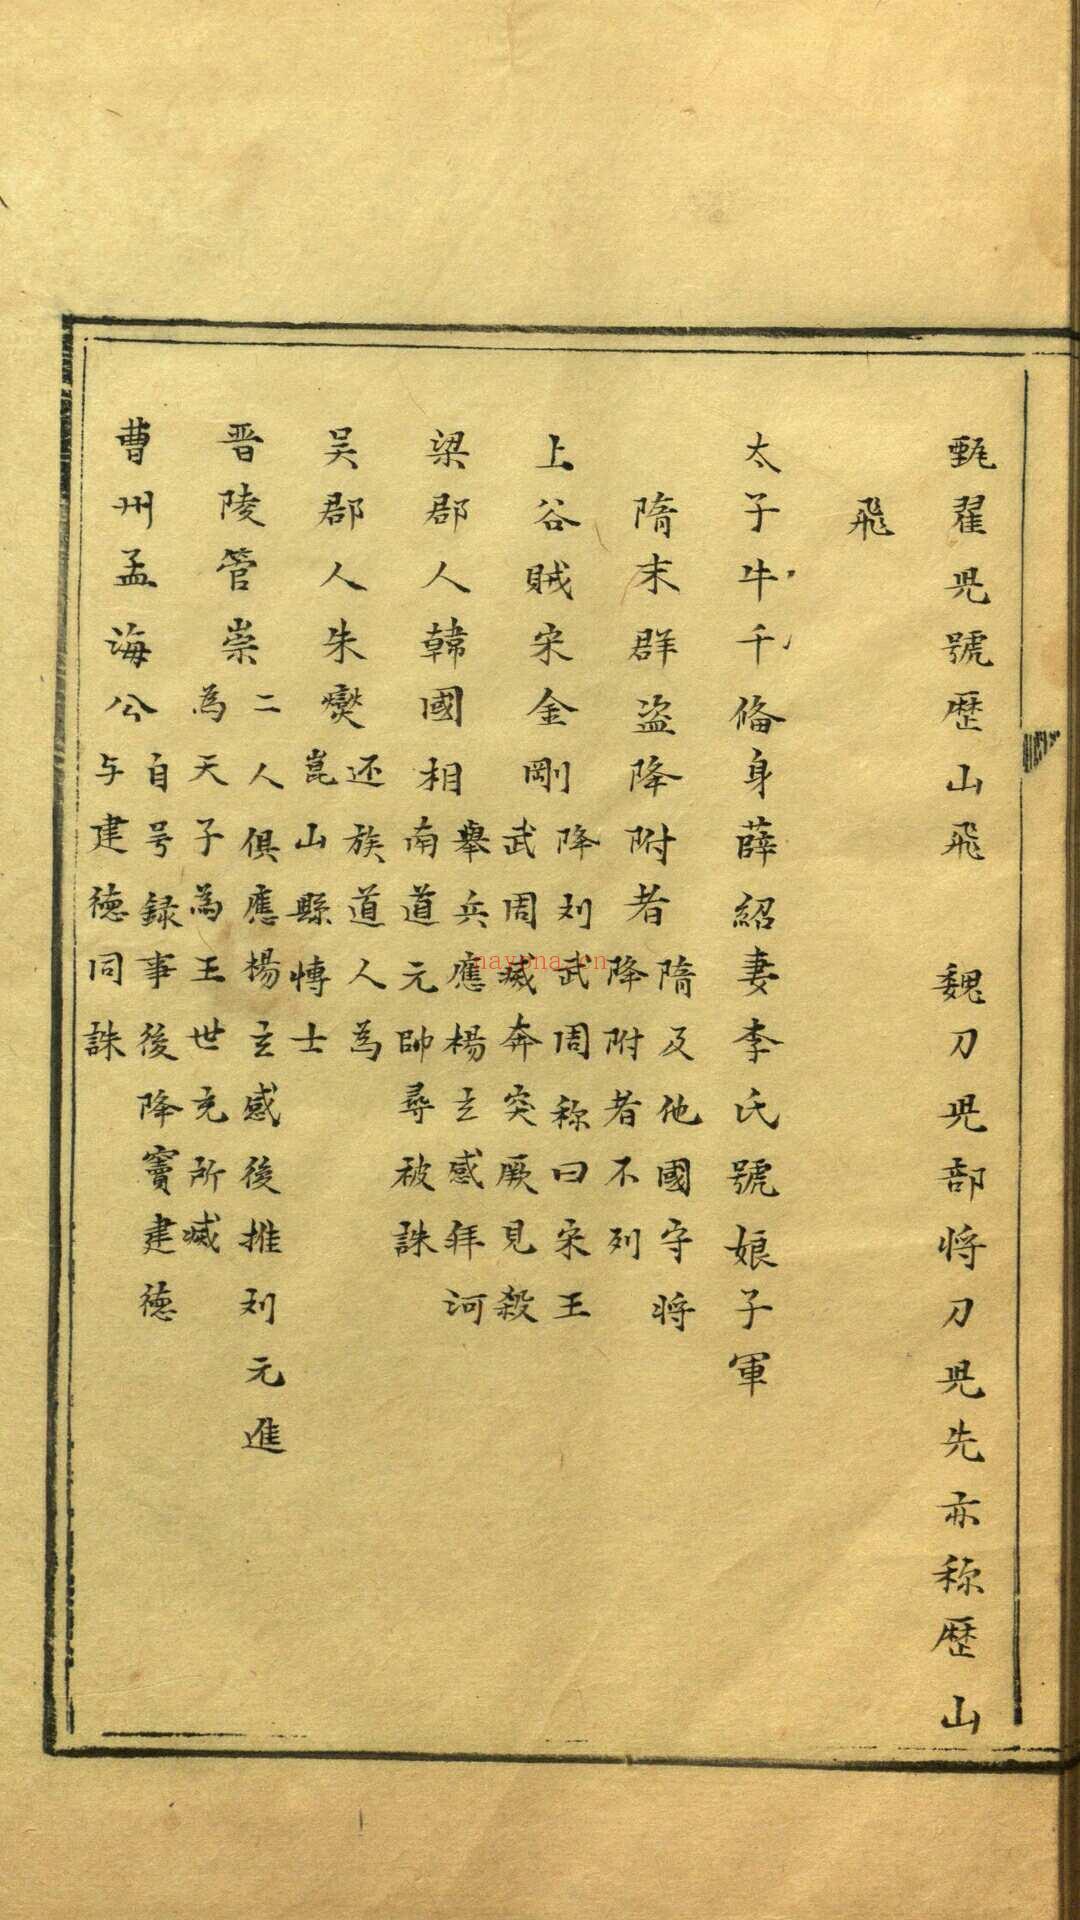 甄翟児號歴山飛　魏刀児部将刀児先亦称歴山
飛
太子牛千俻身薛紹妻李氏號娘子軍
隋末群盗降附者隋及他國守将
降附者不列
上谷賊宋金剛降刘武周称曰宋王
武周滅奔突厥見殺
梁郡人韓國相舉兵應楊玄感拜河
南道元帥尋被誅
吴郡人朱燮还族道人為
崑山縣博士
晋陵管崇二人俱應楊玄感後推刘元進
為天子為王世充所滅
曹州孟海公自号録事後降竇建德
与建德同誅
nayona.cn